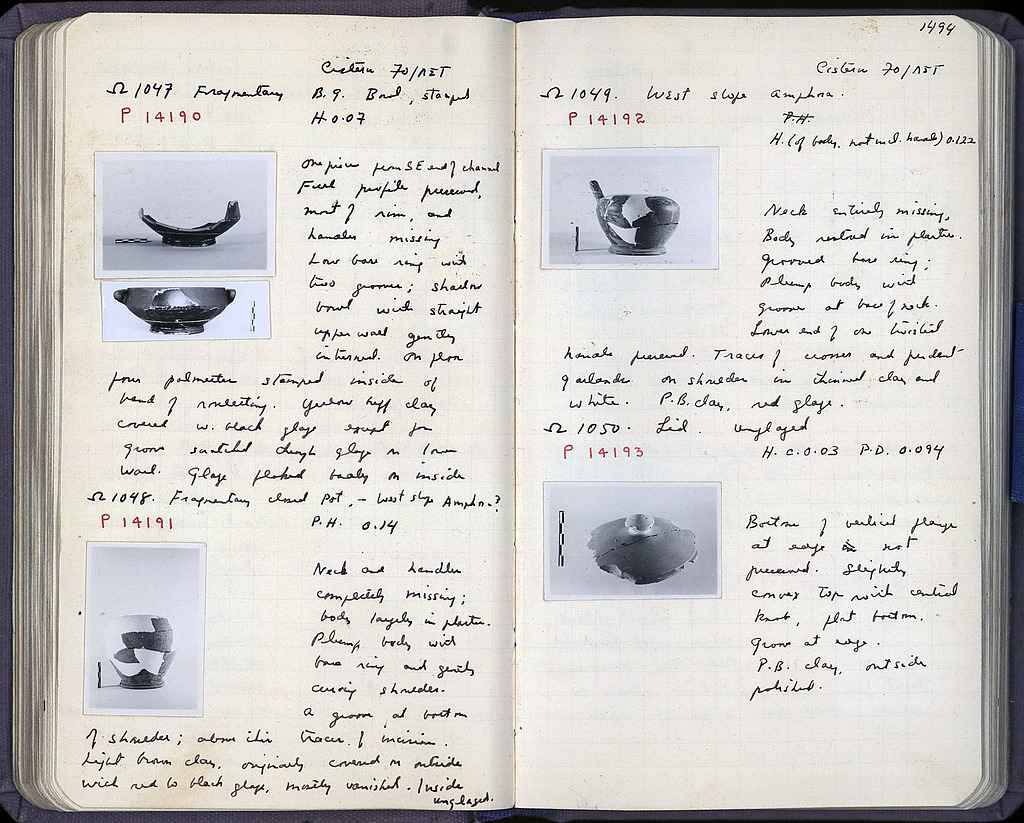 Cistern 70/ΛΣΤ
Ω 1047 Fragmentary B.G. Bowl, stamped
P 14190 H. 0.07
One piece from SE end of channel
Full profile preserved,
most of rim, and
handles missing
Low base ring with
two grooves; shallow
bowl with straight
upper wall gently
inturned. On floor
four palmettes stamped inside of
band of rouletting. Yellow buff clay
covered w. black glaze except for
groove scratched through glaze on lower
wall. Glaze flaked badly on inside
Ω 1048. Fragmentary closed Pot, - West slope Amphora?
P 14191 P.H. 0.14
Neck and handles
completely missing;
body largely in plaster.
Plump body with
base ring and gently
curving shoulder.
A groove at bottom
of shoulder; above this traces of incision.
Light brown clay, originally covered on outside
with red to black glaze, mostly vanished. Inside
unglazed.
1494
Cistern 70/ΛΣΤ
Ω 1049. West slope Amphora.
P 14192 P.H.
H. (of body, not incl. handle) 0.122
Neck entirely missing,
Body restored in plaster.
Grooved base ring;
Plump body with
groove at base of neck.
Lower end of one twisted
handle preserved. Traces of crosses and pendent
garlands on shoulder in thinned clay and
white. P.B. clay, red glaze.
Ω 1050. Lid. Unglazed
P 14193 H. c. 0.03 P.D. 0.094
Bottom of vertical flange
at edge not
preserved. Slightly
convex top with central
knob, flat bottom.
Groove at edge.
P.B. clay, outside
polished.